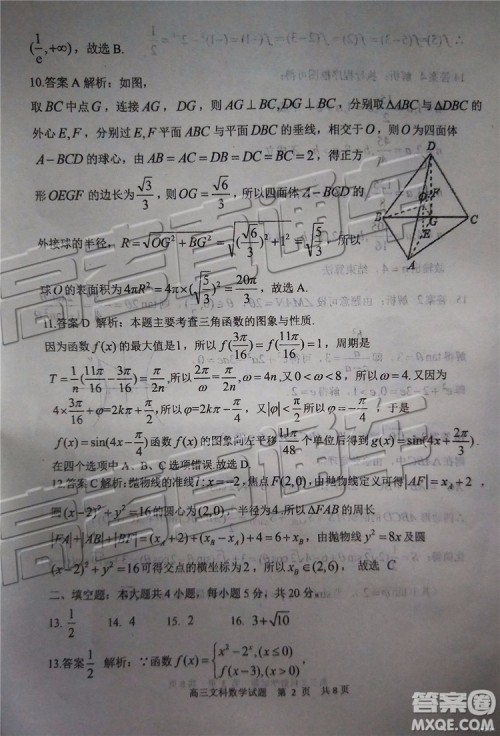 (1/e, +∞), 故选 B.
10.答案 A 解析：如图,
取BC中点G，连接AG，DG，则AG⊥BC,DG⊥BC，分别取ΔABC与ΔDBC的
外心E,F，分别过E,F平面ABC与平面DBC的垂线，相交于O，则O为四面体
A-BCD的球心，由AB=AC=DB=DC=BC=2，得正方
形OEGF的边长为√3/3，则OG=√6/3，所以四面体A-BCD的
外接球的半径，R=√(OG²+BG²)=√((√6/3)²+1²)=√(5/3)，所以
球O的表面积为4πR²=4π×(√(5/3))²=20π/3.
D
B
C
A
O
F
G
E
11.答案 D 解析：本题主要考查三角函数的图象与性质.
因为函数f(x)的最大值是1，所以f(3π/16)=f(11π/16)=1，周期是
T=1/n(11π/16-3π/16)=π/2n,所以2π/ω=π/2n,ω=4n,又0<ω<8，所以ω=4,又因为
4×3π/16+φ=2kπ+π/2,所以φ=2kπ-π/4，又|φ|<π/2所以φ=-π/4，于是
f(x)=sin(4x-π/4)函数f(x)的图象向左平移11π/48个单位后得到g(x)=sin(4x+2π/3).
在四个选项中A、B、C选项错误.故选D.
12.答案 C 解析：抛物线的准线l:x=-2,焦点F(2,0),由抛物线定义可得|AF|=x_A+2，
圆(x-2)²+y²=16的圆心(2,0)，半径为4.所以ΔFAB的周长
由抛物线y²=8x及圆
(x-2)²+y²=16可得交点的横坐标为2，所以x_B∈(2,6)，故选 C
二、填空题：本大题共4小题，每小题5分，共20分.
13. 1/2 14. 4 15. 2 16. 3+√10
13.答案1/2 解析：∵函数f(x)={x²-2^x,(x≤0) f(x-3),(x>0)，
高三文科数学试题 第 2 页 共8页
高考直通车
答案圈
MXQE.COM